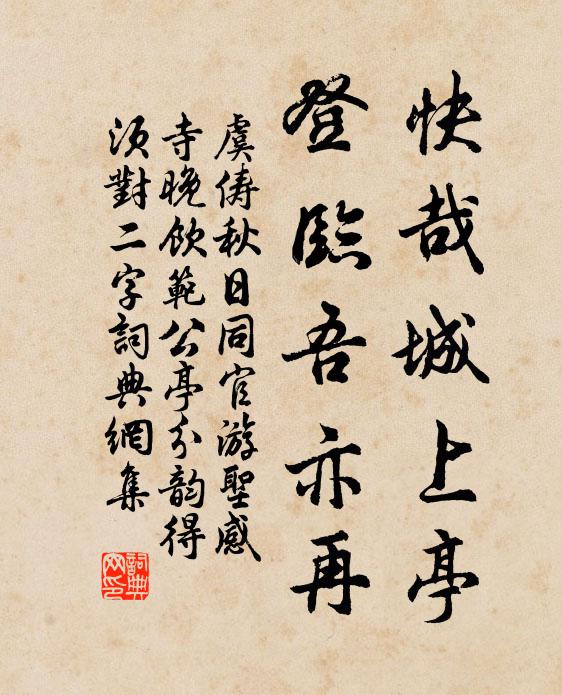 快哉城上亭
登臨吾亦再
虞儔秋日同官游聖感
寺晚飲範公亭分韵得
須對二字詞典網集
詞典網印